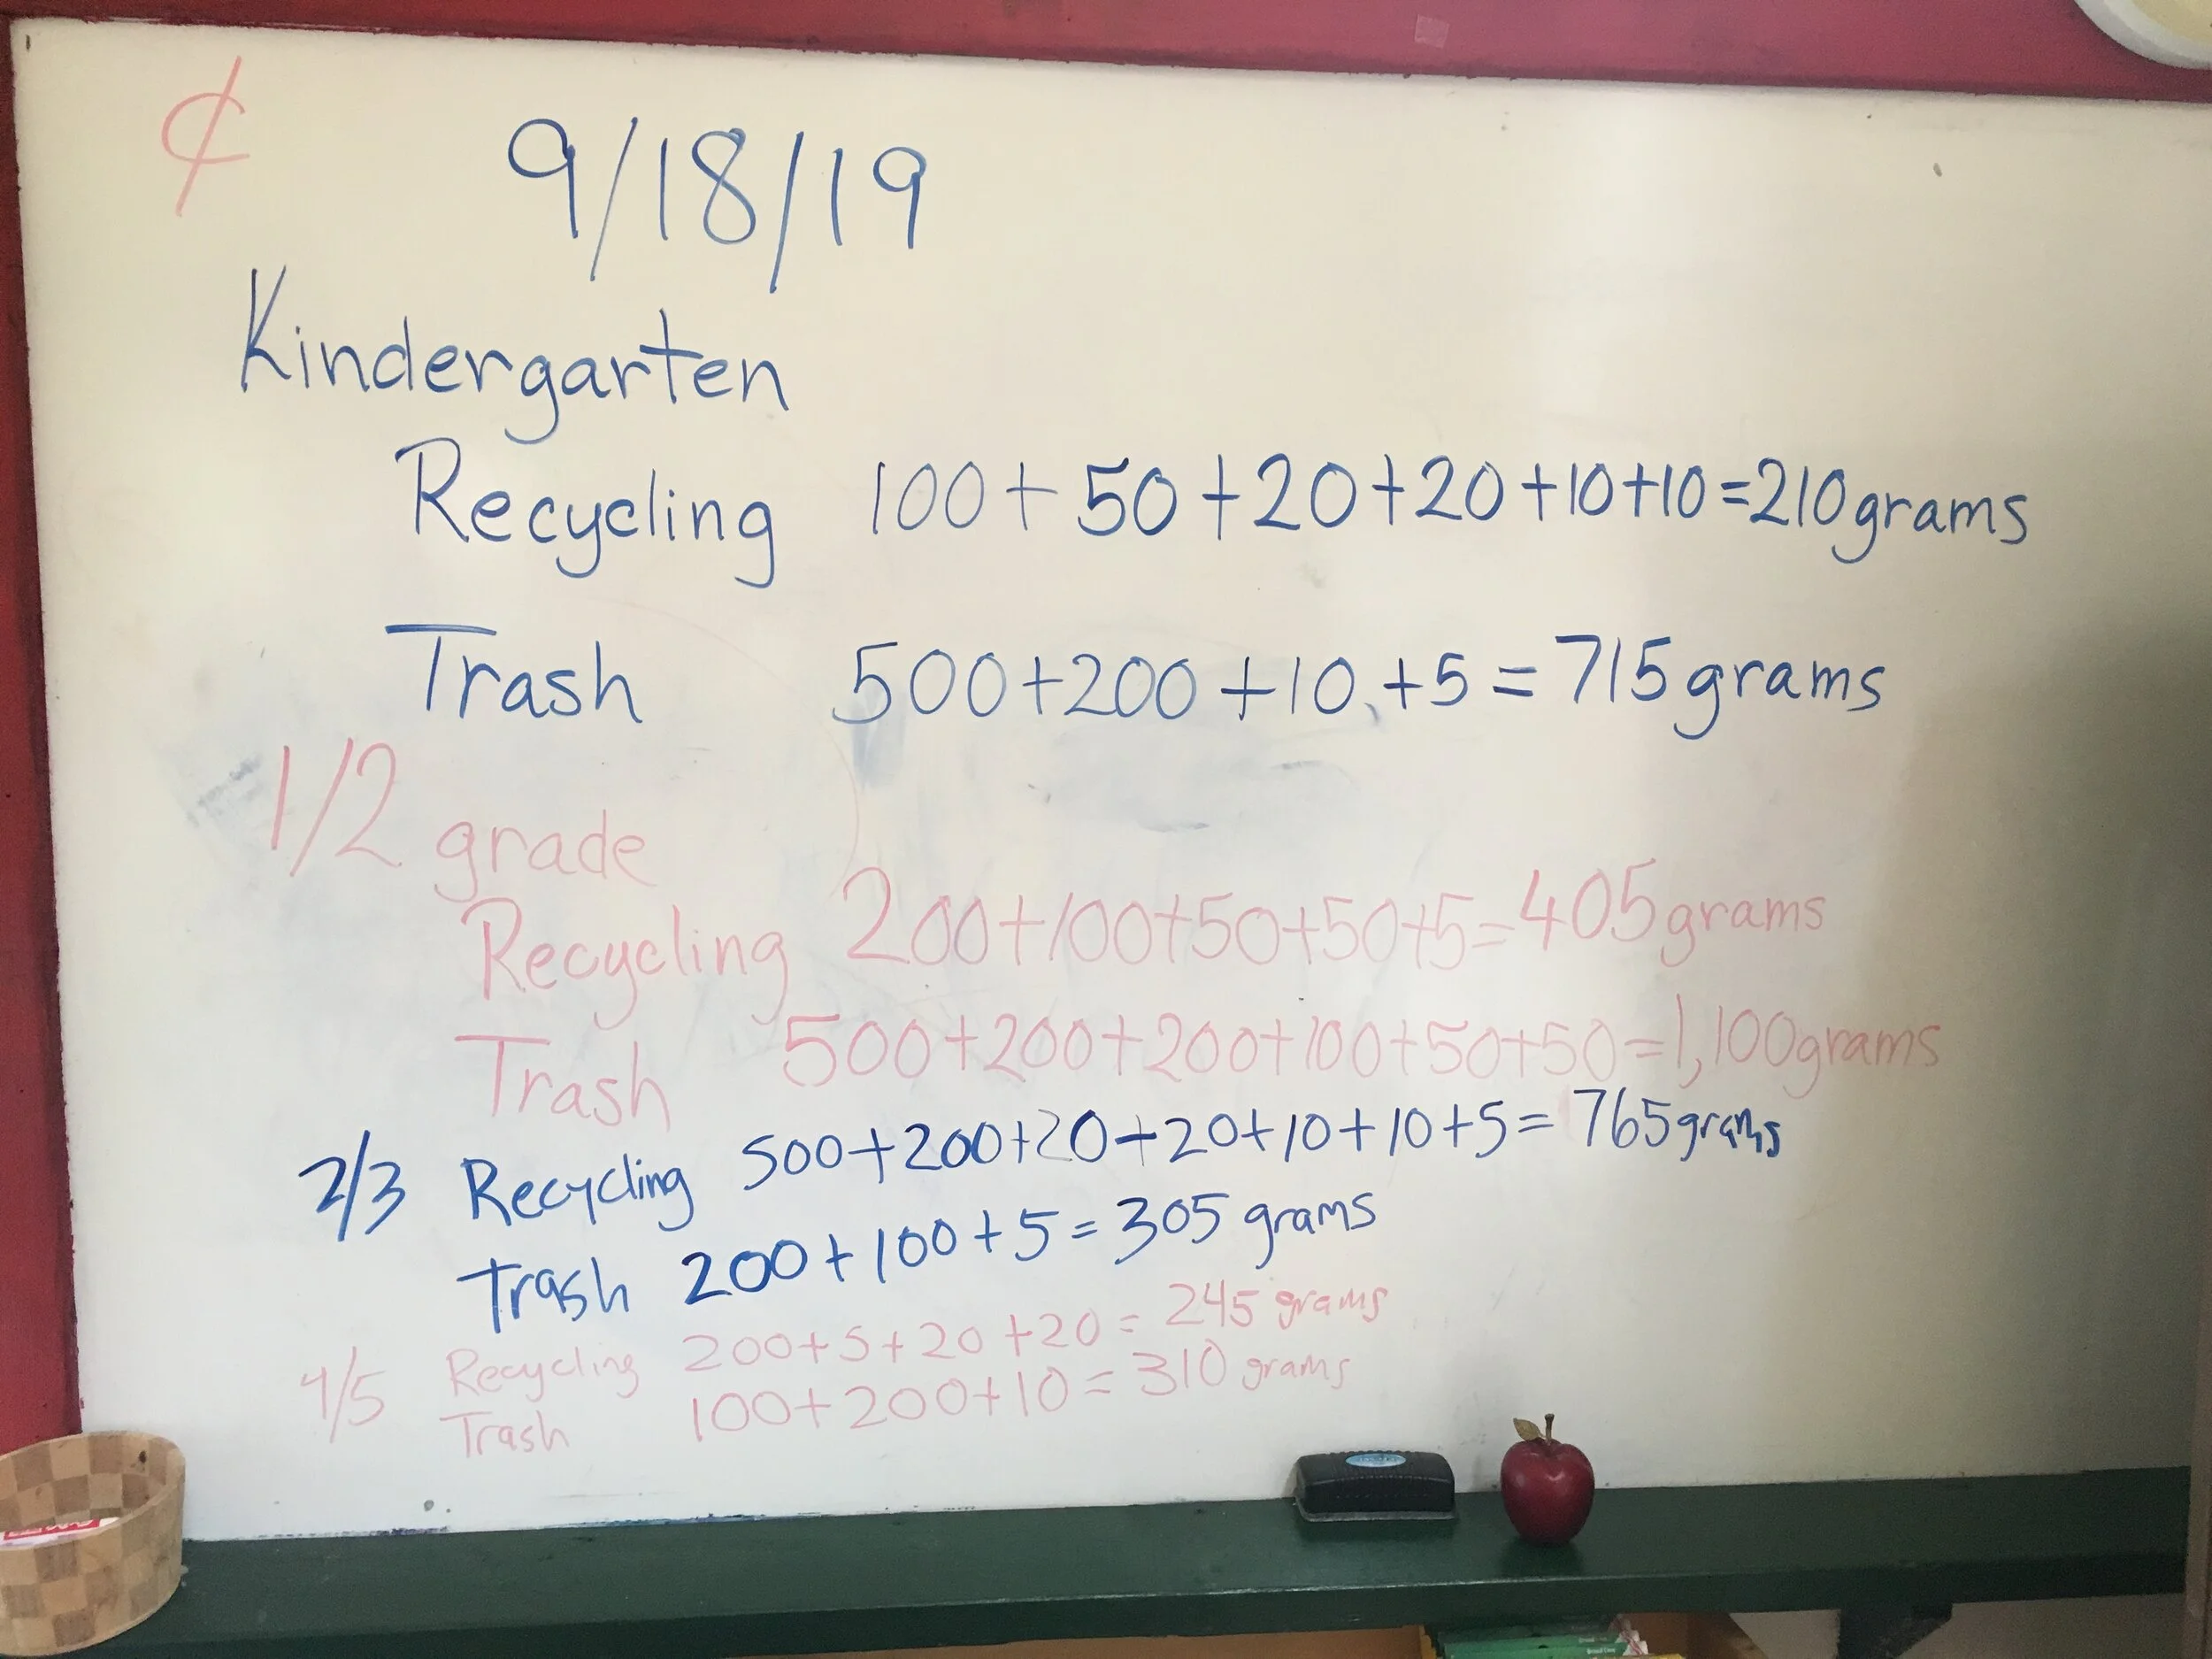 ¢
9/18/19
Kindergarten
Recycling 100+50+20+20+10+10=210grams
Trash 500+200+10+5=715grams
1/2 grade
Recycling 200+100+50+50+5=405grams
Trash 500+200+200+100+50+50=1,100grams
2/3 Recycling 500+200+20+20+10+10+5=765grams
Trash 200+100+5=305 grams
4/5 Recycling 200+5+20+20=245 grams
Trash 100+200+10=310 grams